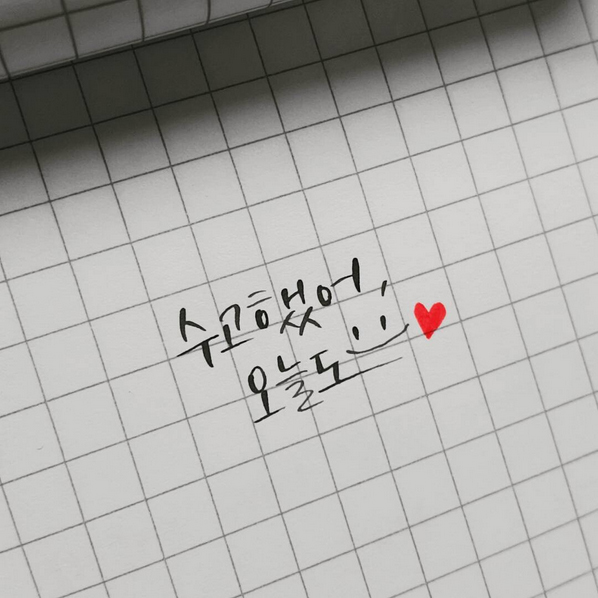 수고했어,
오늘도